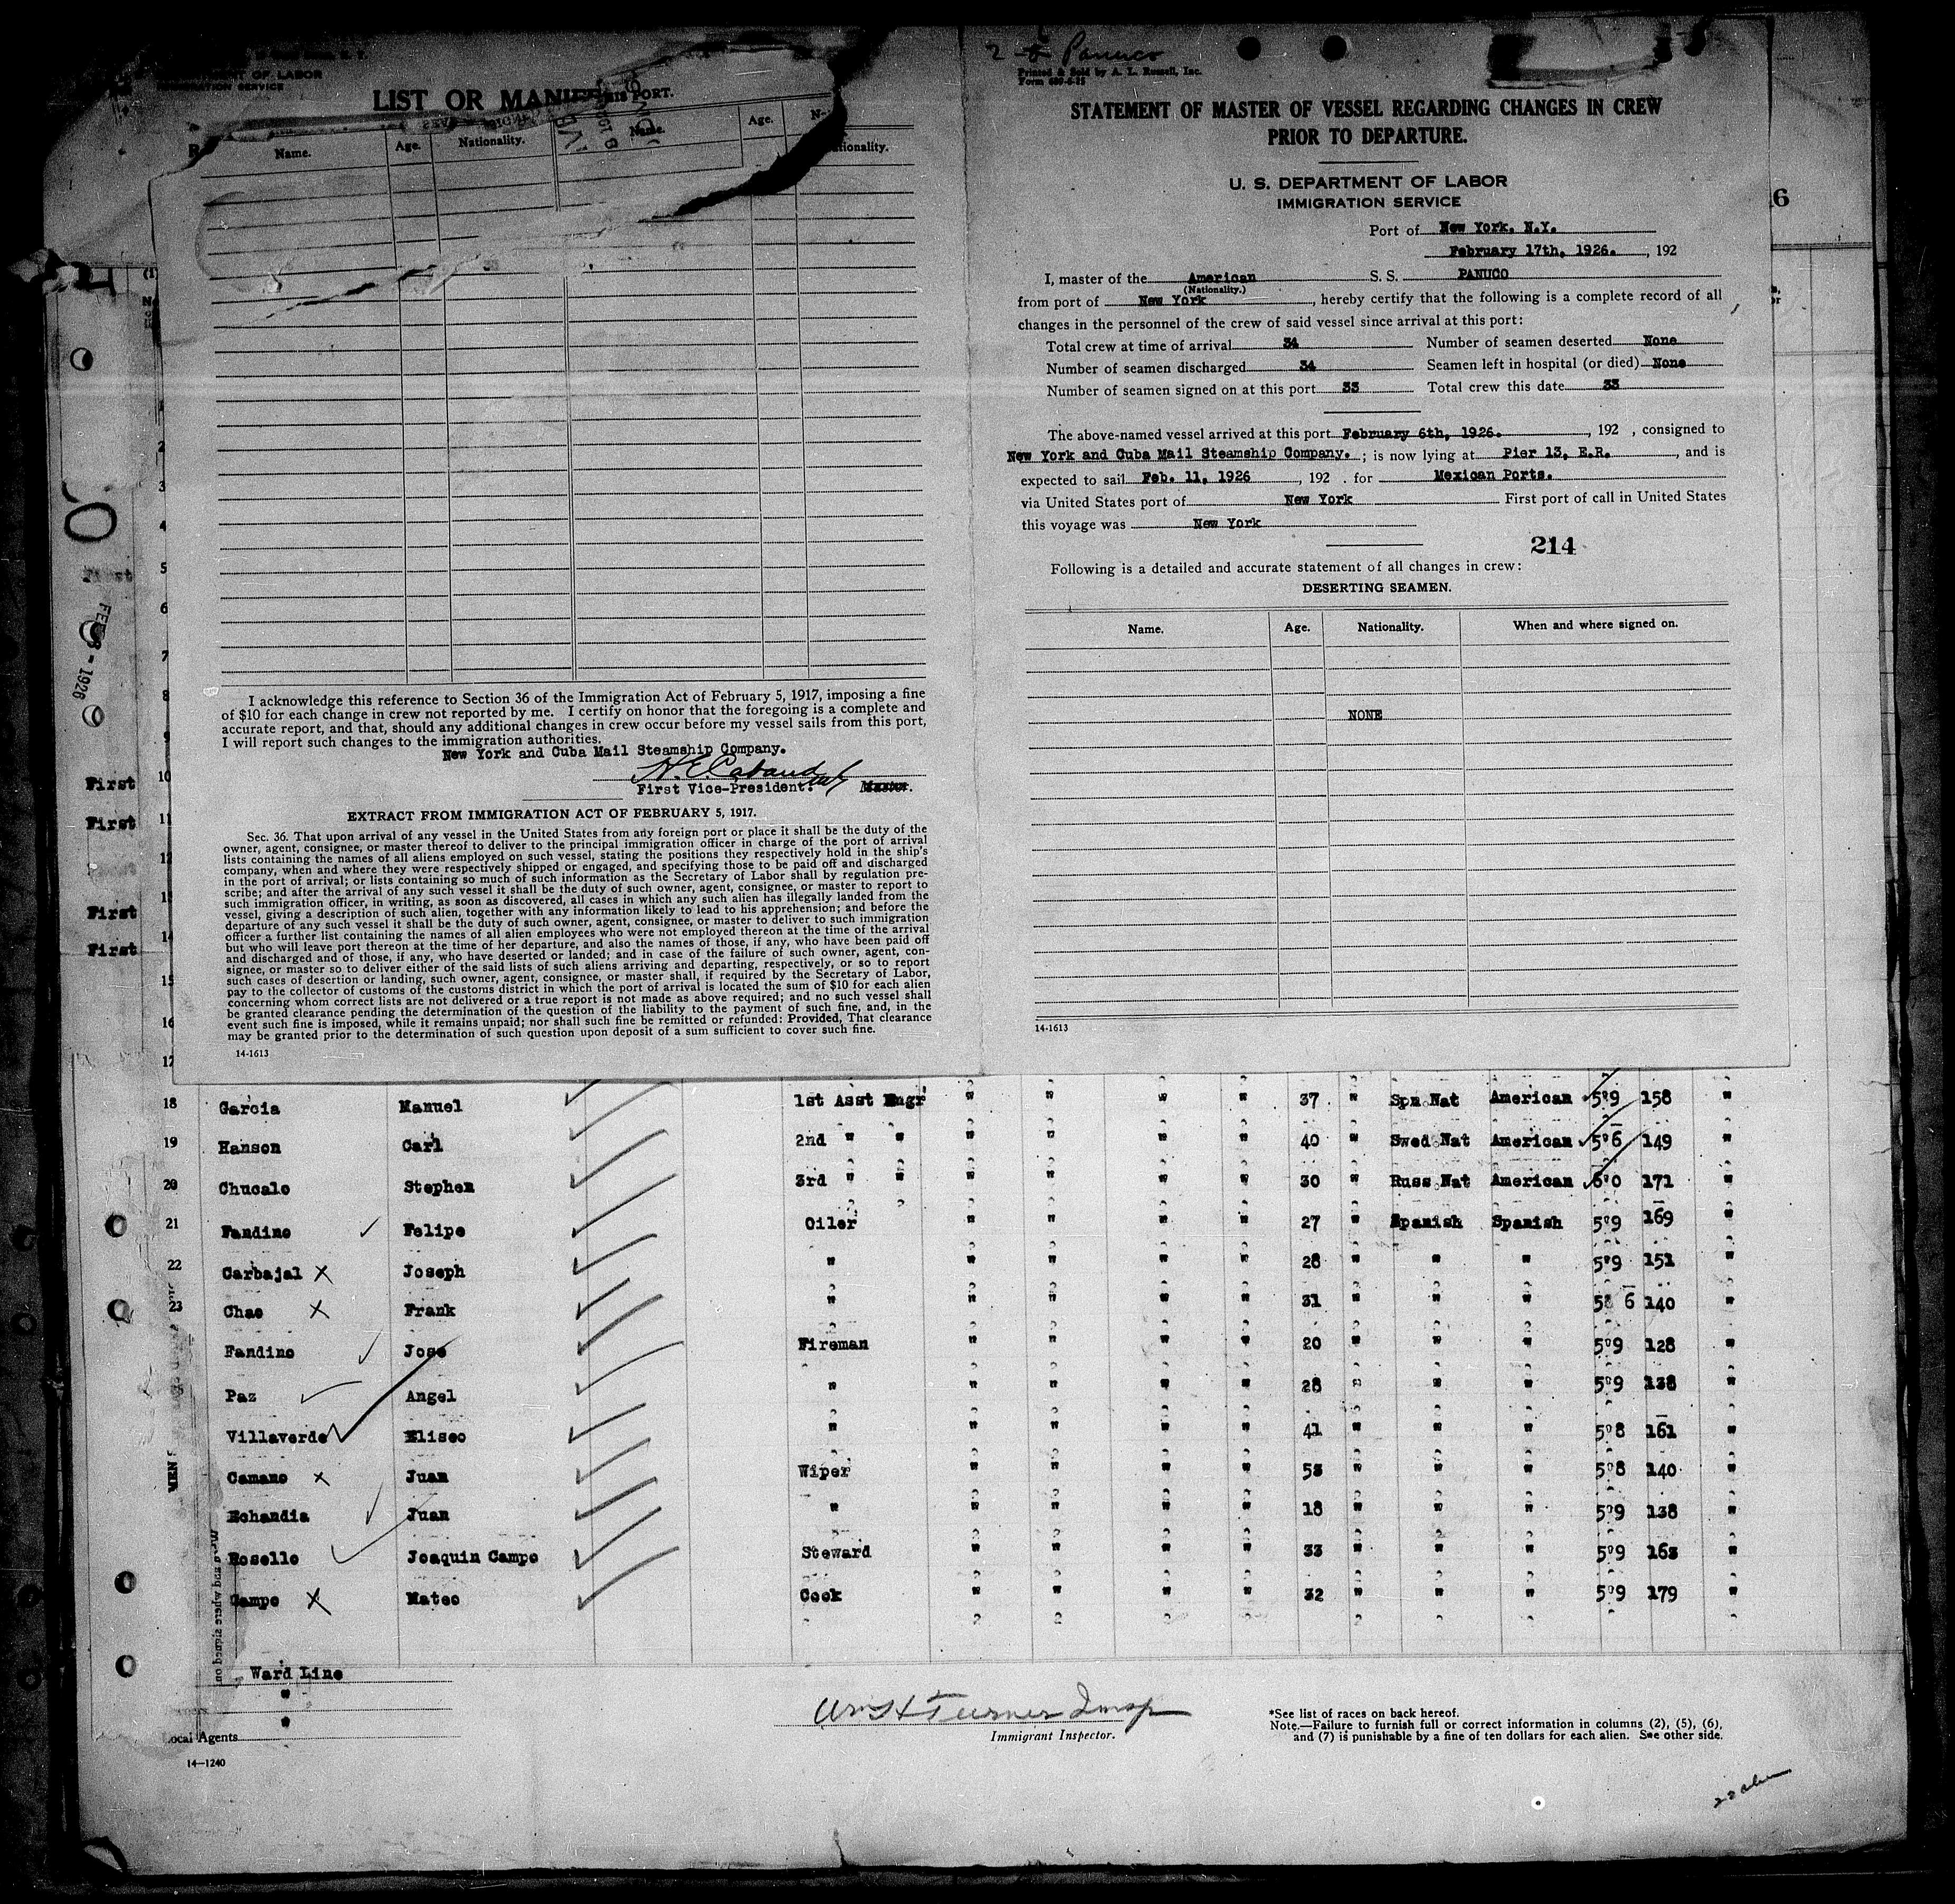 T OF LABOR
IMMIGRATION SERVICE
LIST OR MANI
HIS PORT.
Name. Age. Nationality. Name. Age. N
tionality.
I acknowledge this reference to Section 36 of the Immigration Act of February 5, 1917, imposing a fine
of $10 for each change in crew not reported by me. I certify on honor that the foregoing is a complete and
accurate report, and that, should any additional changes in crew occur before my vessel sails from this port,
I will report such changes to the immigration authorities.
New York and Cuba Mail Steamship Company.
First Vice-President. Master.
EXTRACT FROM IMMIGRATION ACT OF FEBRUARY 5, 1917.
Sec. 36. That upon arrival of any vessel in the United States from any foreign port or place it shall be the duty of the
owner, agent, consignee, or master thereof to deliver to the principal immigration officer in charge of the port of arrival
lists containing the names of all aliens employed on such vessel, stating the positions they respectively hold in the ship's
company, when and where they were respectively shipped or engaged, and specifying those to be paid off and discharged
in the port of arrival; or lists containing so much of such information as the Secretary of Labor shall by regulation pre-
scribe; and after the arrival of any such vessel it shall be the duty of such owner, agent, consignee, or master to report to
such immigration officer, in writing, as soon as discovered, all cases in which any such alien has illegally landed from the
vessel, giving a description of such alien, together with any information likely to lead to his apprehension; and before the
departure of any such vessel it shall be the duty of such owner, agent, consignee, or master to deliver to such immigration
officer a further list containing the names of all alien employees who were not employed thereon at the time of the arrival
but who will leave port thereon at the time of her departure, and also the names of those, if any, who have been paid off
and discharged and of those, if any, who have deserted or landed; and in case of the failure of such owner, agent, con-
signee, or master so to deliver either of the said lists of such aliens arriving and departing, respectively, or so to report
such cases of desertion or landing, such owner, agent, consignee, or master shall, if required by the Secretary of Labor,
pay to the collector of customs of the customs district in which the port of arrival is located the sum of $10 for each alien
concerning whom correct lists are not delivered or a true report is not made as above required; and no such vessel shall
be granted clearance pending the determination of the question of the liability to the payment of such fine, and, in the
event such fine is imposed, while it remains unpaid; nor shall such fine be remitted or refunded: Provided, That clearance
may be granted prior to the determination of such question upon deposit of a sum sufficient to cover such fine.
14-1613
2 Panuco
Printed & Sold by A. L. Russell, Inc.
STATEMENT OF MASTER OF VESSEL REGARDING CHANGES IN CREW
PRIOR TO DEPARTURE.
U. S. DEPARTMENT OF LABOR
IMMIGRATION SERVICE
Port of New York, N.Y.
February 17th, 1926. , 192
I, master of the American S. S. PANUCO
(Nationality.)
from port of New York , hereby certify that the following is a complete record of all
changes in the personnel of the crew of said vessel since arrival at this port:
Total crew at time of arrival 34 Number of seamen deserted None
Number of seamen discharged 34 Seamen left in hospital (or died) None
Number of seamen signed on at this port 33 Total crew this date 33
The above-named vessel arrived at this port February 6th, 1926. , 192 , consigned to
New York and Cuba Mail Steamship Company. ; is now lying at Pier 13, E.R. , and is
expected to sail Feb. 11, 1926 , 192 . for Mexican Ports.
via United States port of New York First port of call in United States
this voyage was New York
214
Following is a detailed and accurate statement of all changes in crew:
DESERTING SEAMEN.
Name. Age. Nationality. When and where signed on.
NONE
14-1613
6
1
2
3
4
5
6
7
8
9
First 10
First 11
12
First 13
First 14
15
16
17
FEB 8 - 1926
18 Garcia Manuel 1st Asst Engr " " " " 37 " Spn Nat American 5 9 158 "
19 Hanson Carl 2nd " " " " " " 40 " Swed Nat American 5 6 149 "
20 Chucalo Stephen 3rd " " " " " " 30 " Russ Nat American 6 0 171 "
21 Fandino Felipe Oiler " " " " 27 " Spanish Spanish 5 9 169 "
22 Carbajal X Joseph " " " " " 28 " " " 5 9 151 "
23 Chao X Frank " " " " " 31 " " " 5 6 140 "
Fandino Jose Fireman " " " " 20 " " " 5 9 128 "
Paz Angel " " " " " 28 " " " 5 9 138 "
Villaverde Eliseo " " " " " 41 " " " 5 8 161 "
Camano X Juan Wiper " " " " 53 " " " 5 8 140 "
Echandia Juan " " " " " 18 " " " 5 9 138 "
Rosello Joaquin Campo Steward " " " " 33 " " " 5 9 163 "
Campo X Mateo Cook " " " " 32 " " " 5 9 179 "
Ward Line
"
"
Local Agents
14-1240
Wm H Turner Insp
Immigrant Inspector.
*See list of races on back hereof.
Note.—Failure to furnish full or correct information in columns (2), (5), (6),
and (7) is punishable by a fine of ten dollars for each alien. See other side.